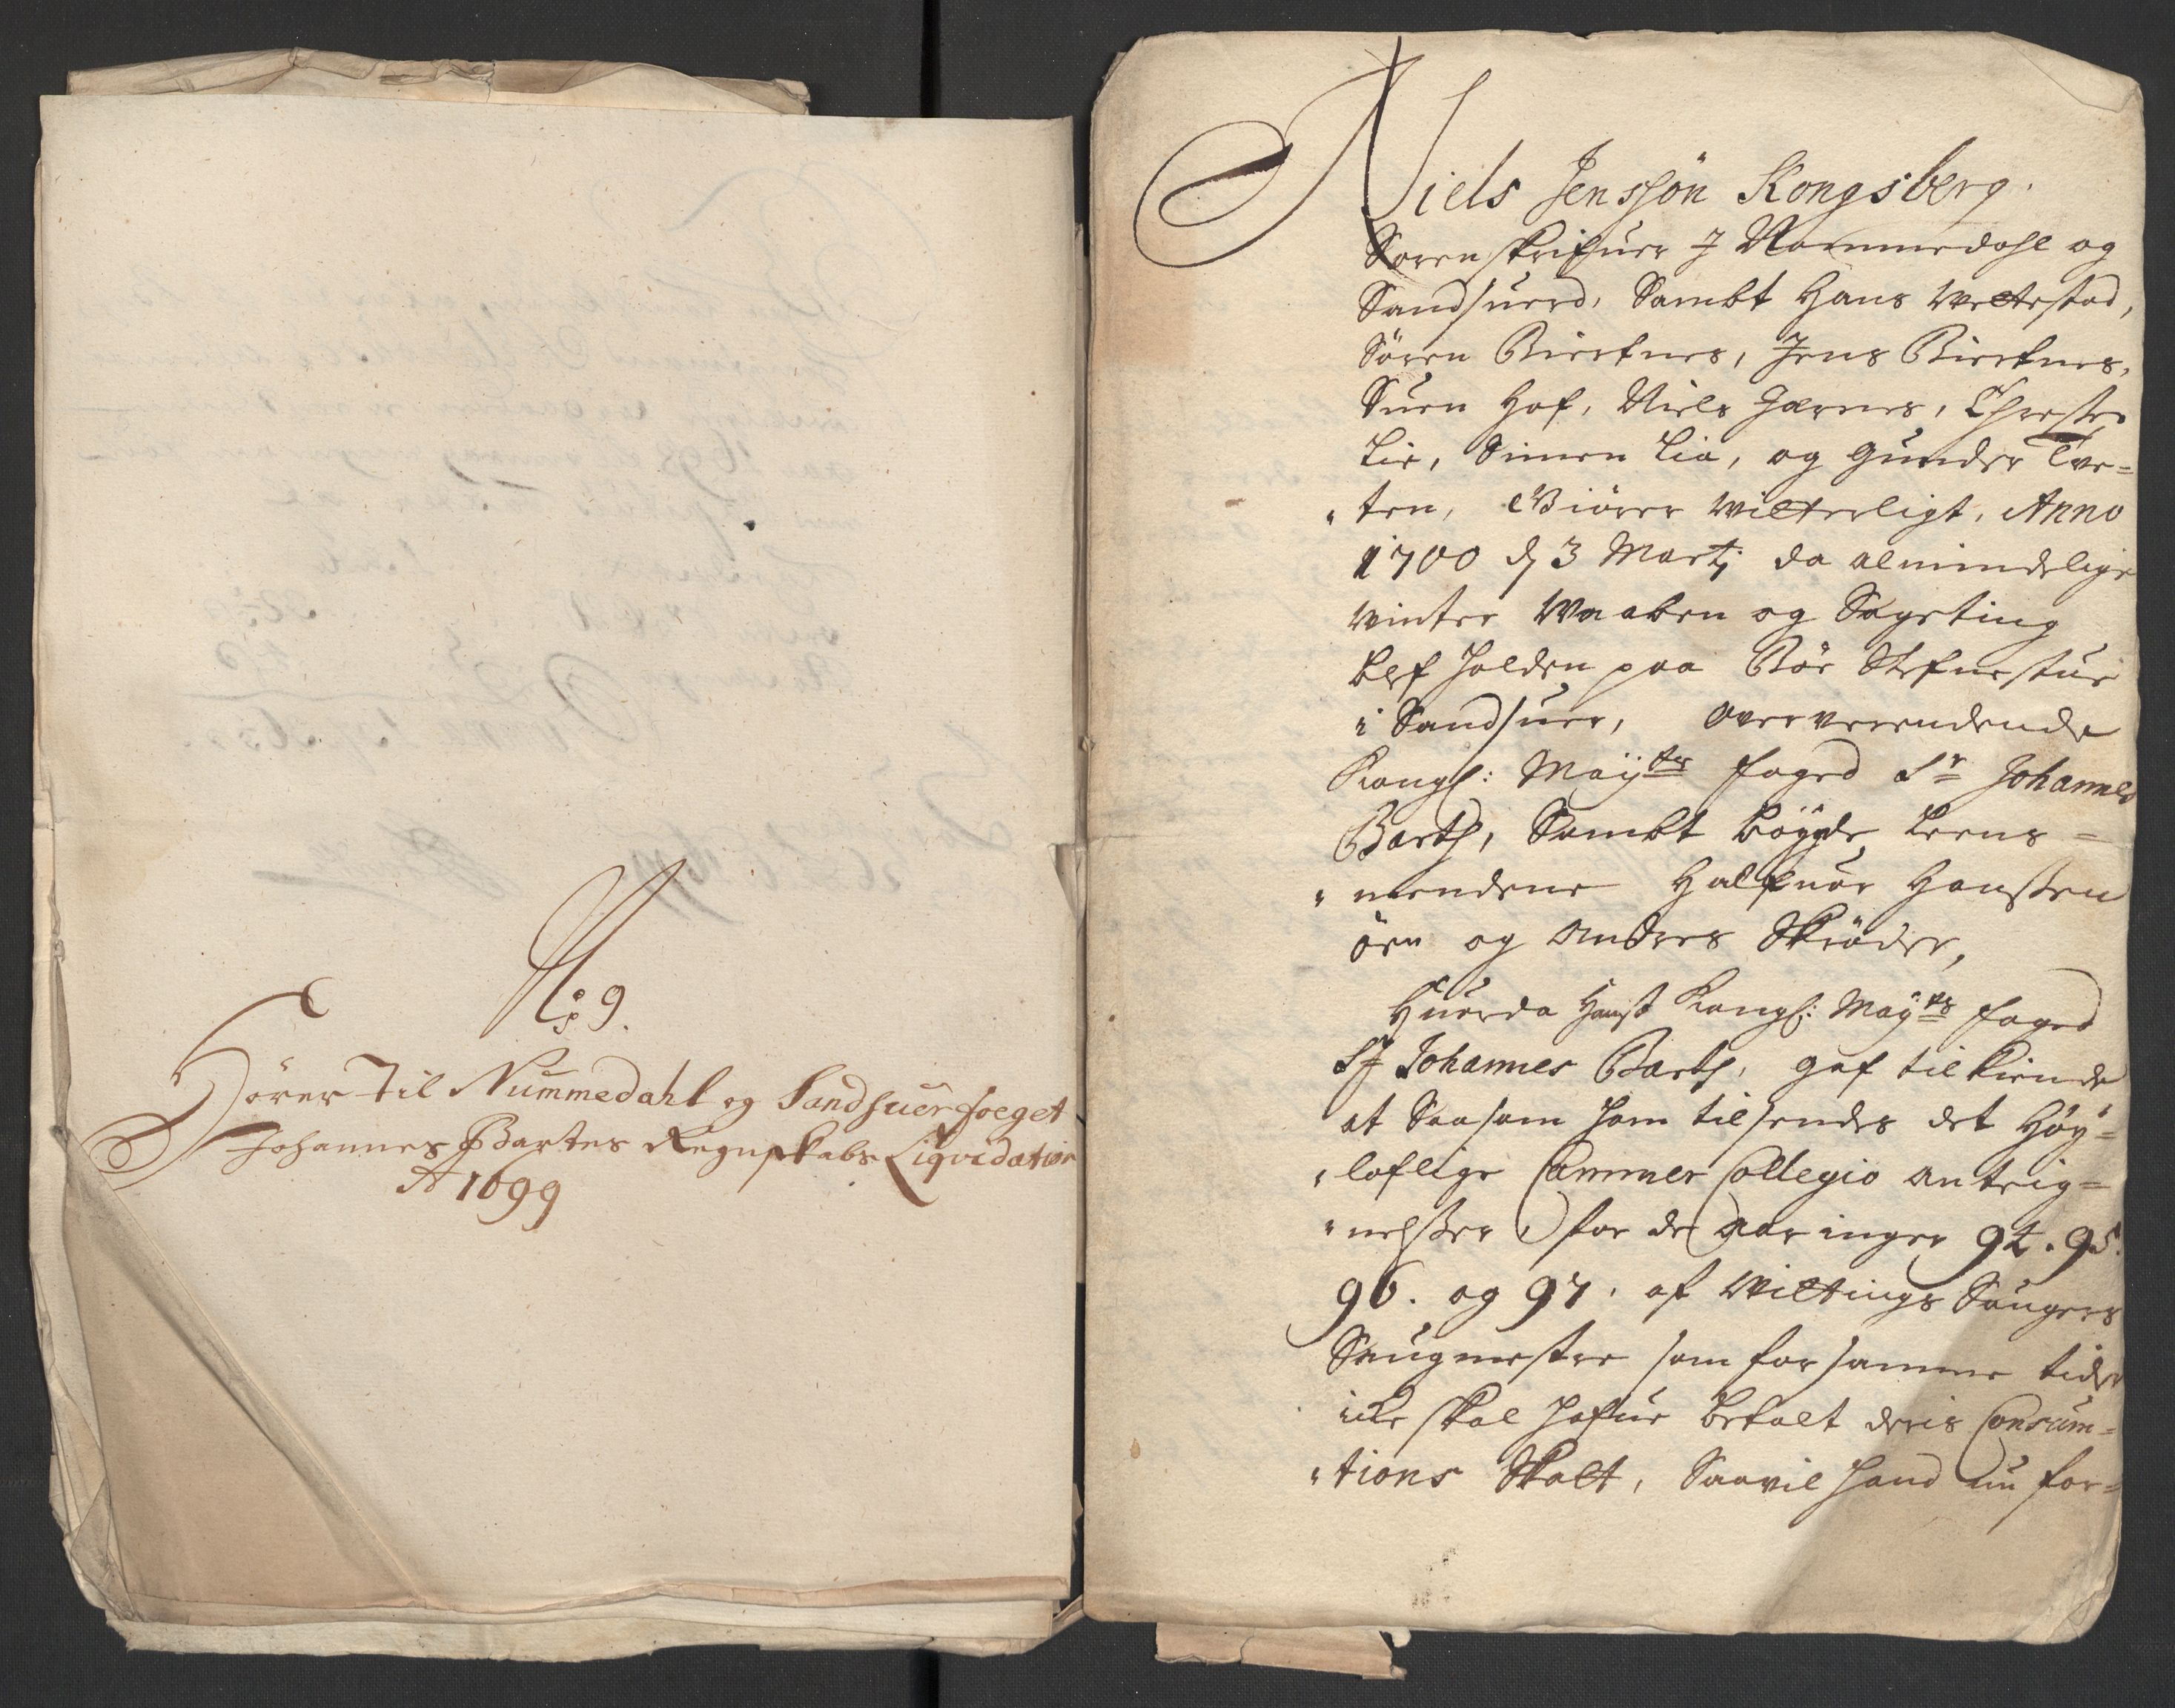 No 9.
Hörer Til Nummedahl og Sandsuer foeget
Johannes Bartes Regnskabs Liqvidation
Ao 1699
Niels Jenssøn Kongsberg.
Sorenskrifuer J Nommedahl og
Sandsuerd, Sambt Hans Wettestad,
Sören Bierknes, Jens Bierknes,
Suen Hof, Niels Giernes, Christen
Lie, Simen Lia, og Gunder Tve=
ten, Giörer Witterligt, Anno
1700 d 3 Martj da almindelige
Winter Waaben og Sageting
blef holden paa Böe Stefnestue
i Sandsuer, Oververendende
Kongl: Mayts foged Sr Johannes
Barth, Sambt böygde Leens=
mendene Halfuor Hanssen
öen og Andres Skröder,
Huorda Hanß Kongl: Mayts foged
Sr Johannes Barth, gaf tilkiende
at Saasom ham tilsendes det Höy=
loflige Cammer Collegio anteig=
nelßer for de Aaringer 94. 95.
96. og 97. af Wittings Saugers
Saugmestre som for samme tider
icke skal hafue betalt deris Consum=
tions Skatt, Saavil hand nu for=